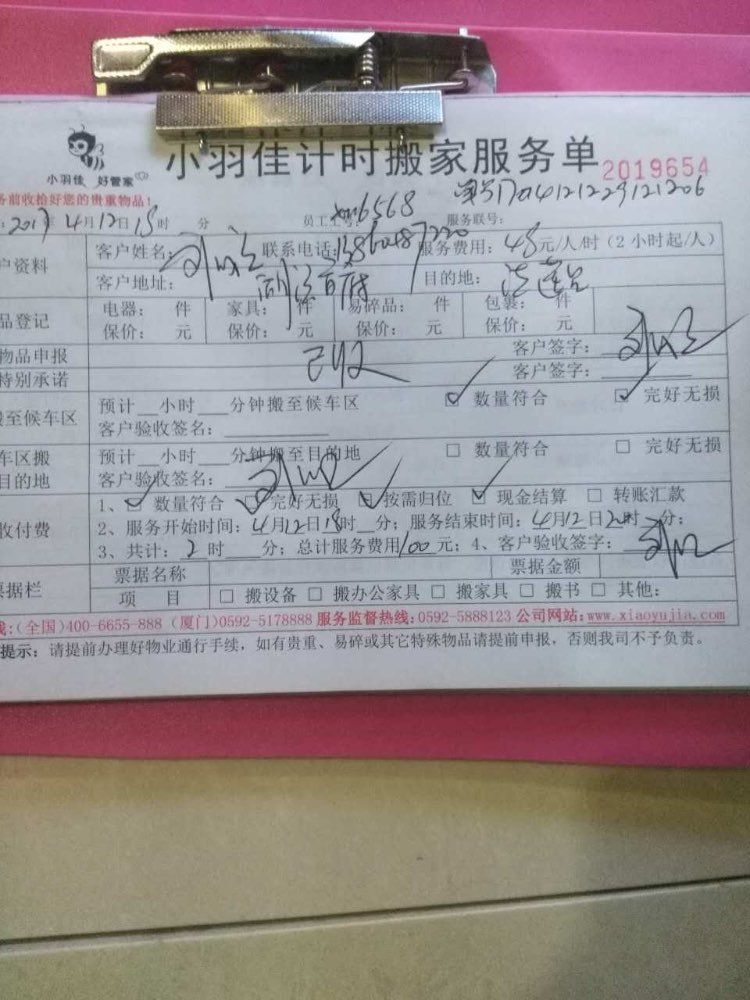 小羽佳 好管家
小羽佳计时搬家服务单 2019654
务前收拾好您的贵重物品! 单号1704121229121206
2017年4月12日18时 分 员工工号: xm6568 服务联号:
户资料 客户姓名: 联系电话: 服务费用: 48元/人/时(2小时起/人)
客户地址: 目的地:
品登记 电器: 件 家具: 件 易碎品: 件 包裹: 件
保价: 元 保价: 元 保价: 元 保价: 元
物品申报 客户签字:
特别承诺 已收 客户签字:
搬至候车区 预计__小时__分钟搬至候车区 ☑ 数量符合 ☑ 完好无损
客户验收签名:
车区搬 预计__小时__分钟搬至目的地 □ 数量符合 □ 完好无损
目的地 客户验收签名:
收付费 1、☑ 数量符合 ☑ 完好无损 ☑ 按需归位 ☑ 现金结算 □ 转账汇款
2、服务开始时间: 4月12日18时__分; 服务结束时间: 4月12日20时__分;
3、共计: 2时 分; 总计服务费用100元; 4、客户验收签字:
票据栏 票据名称 票据金额
项 目 □ 搬设备 □ 搬办公家具 □ 搬家具 □ 搬书 □ 其他:
线:(全国)400-6655-888 (厦门)0592-5178888 服务监督热线:0592-5888123 公司网站:www.xiaoyujia.com
提示: 请提前办理好物业通行手续, 如有贵重、易碎或其它特殊物品请提前申报, 否则我司不予负责。